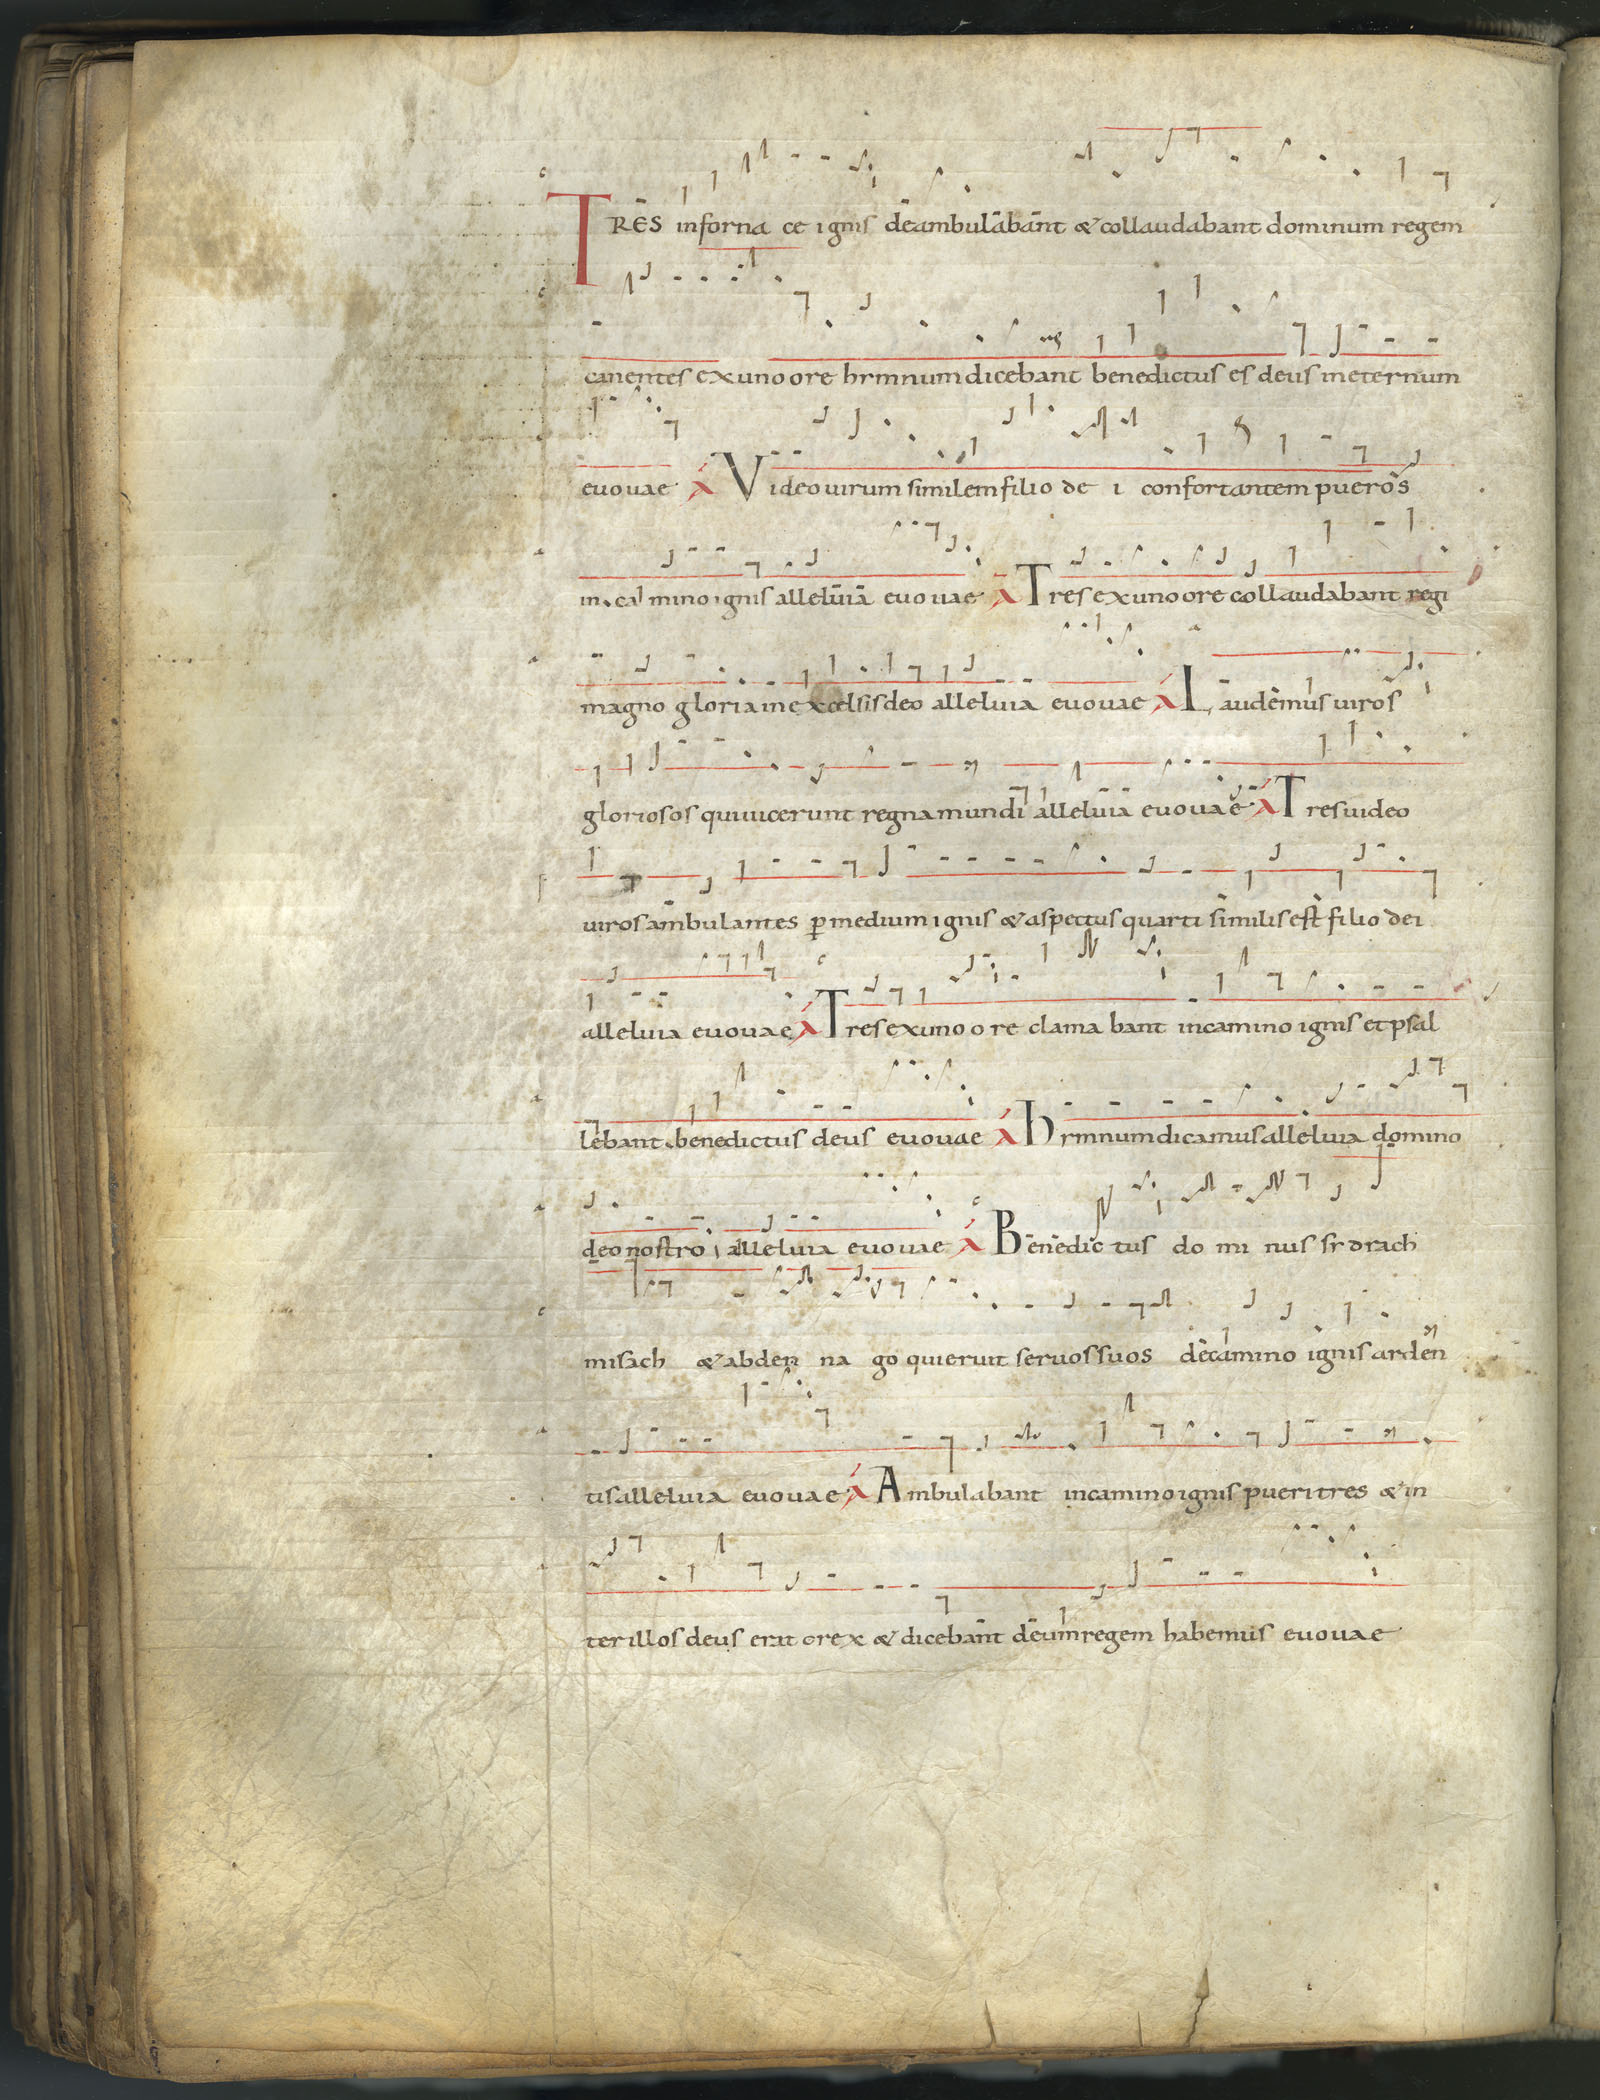 TRES in forna ce ignis deambulabant & collaudabant dominum regem
canentes ex uno ore hrmnum dicebant benedictus es deus in eternum
euouae A Video uirum similem filio de i confortantem pueros
in cal mino ignis alleluia euouae A Tres ex uno ore collaudabant regi
magno gloria in excelsis deo alleluia euouae A Laudemus uiros
gloriosos qui uicerunt regna mundi alleluia euouae A Tres uideo
uiros ambulantes p medium ignis & aspectus quarti similis est filio dei
alleluia euouae A Tres ex uno o re clama bant in camino ignis et psal
lebant benedictus deus euouae A hrmnum dicamus alleluia domino
deo nostro alleluia euouae A Benedic tus do mi nus sr drach
misach & abden na go qui eruit seruos suos de camino ignis arden
tis alleluia euouae A Ambulabant in camino ignis pueri tres & in
ter illos deus erat o rex & dicebant deum regem habemus euouae